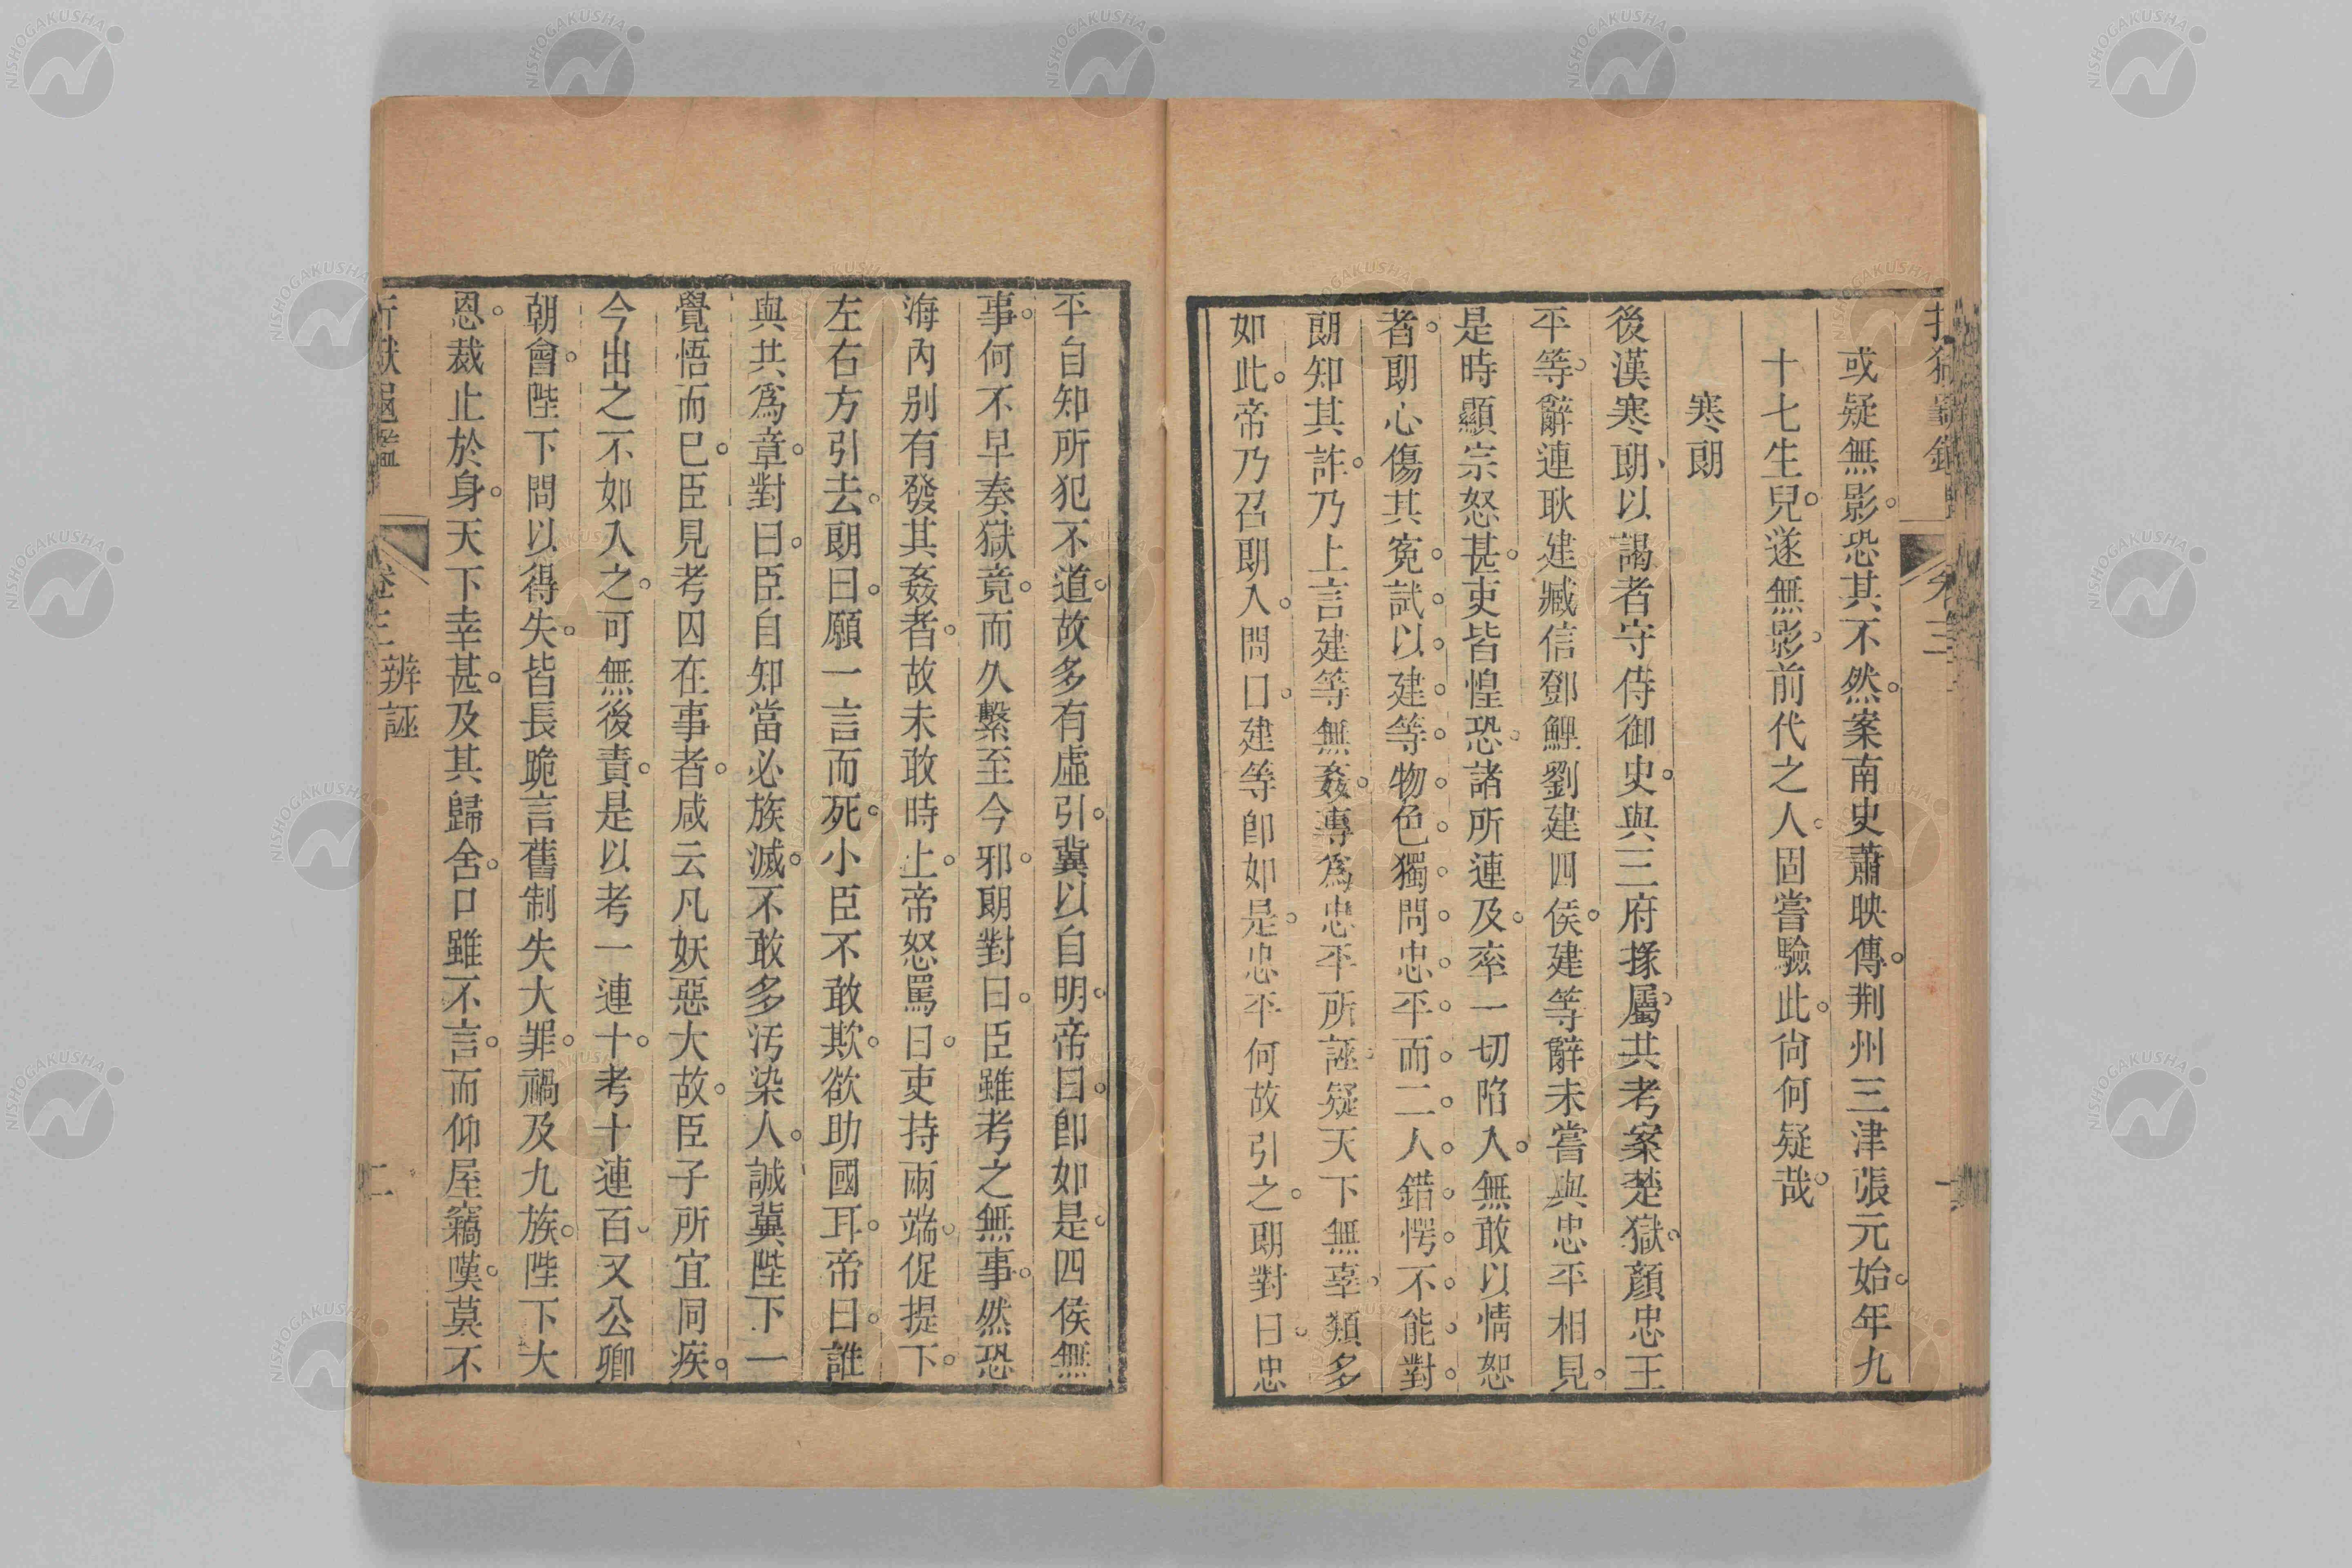 或疑無影。恐其不然。案南史蕭映傳。荆州三津張元始。年九
十七生兒。遂無影。前代之人。固嘗驗此。尙何疑哉。
寒朗
後漢寒朗、以謁者守侍御史。與三府掾屬。共考案楚獄。顔忠王
平等。辭連耿建臧信鄧鯉劉建四侯。建等辭未嘗與忠平相見。
是時顯宗怒甚。吏皆惶恐。諸所連及。率一切陷入。無敢以情恕
者。朗心傷其寃。試。以。建。等。物。色。獨。問。忠。平。而。二。人。錯。愕。不。能。對。
朗知其詐。乃上言建等無姦。專爲忠平所誣。疑天下無辜。類多
如此。帝乃召朗入。問曰。建等卽如是。忠平何故引之。朗對曰。忠
平自知所犯不道。故多有虛引。冀以自明。帝曰。卽如是。四侯無
事。何不早奏獄竟。而久繫至今邪。朗對曰。臣雖考之無事。然恐
海內別有發其姦者。故未敢時上。帝怒罵曰。吏持兩端。促提下。
左右方引去。朗曰。願一言而死。小臣不敢欺。欲助國耳。帝曰。誰
與共爲章。對曰。臣自知當必族滅。不敢多汚染人。誠冀陛下一
覺悟而已。臣見考囚在事者。咸云凡妖惡大故。臣子所宜同疾。
今出之不如入之。可無後責。是以考一連十。考十連百。又公卿
朝會。陛下問以得失。皆長跪言舊制失大罪。禍及九族。陛下大
恩。裁止於身。天下幸甚。及其歸舍。口雖不言。而仰屋竊嘆。莫不
折獄龜鑑 卷三 辨誣 二